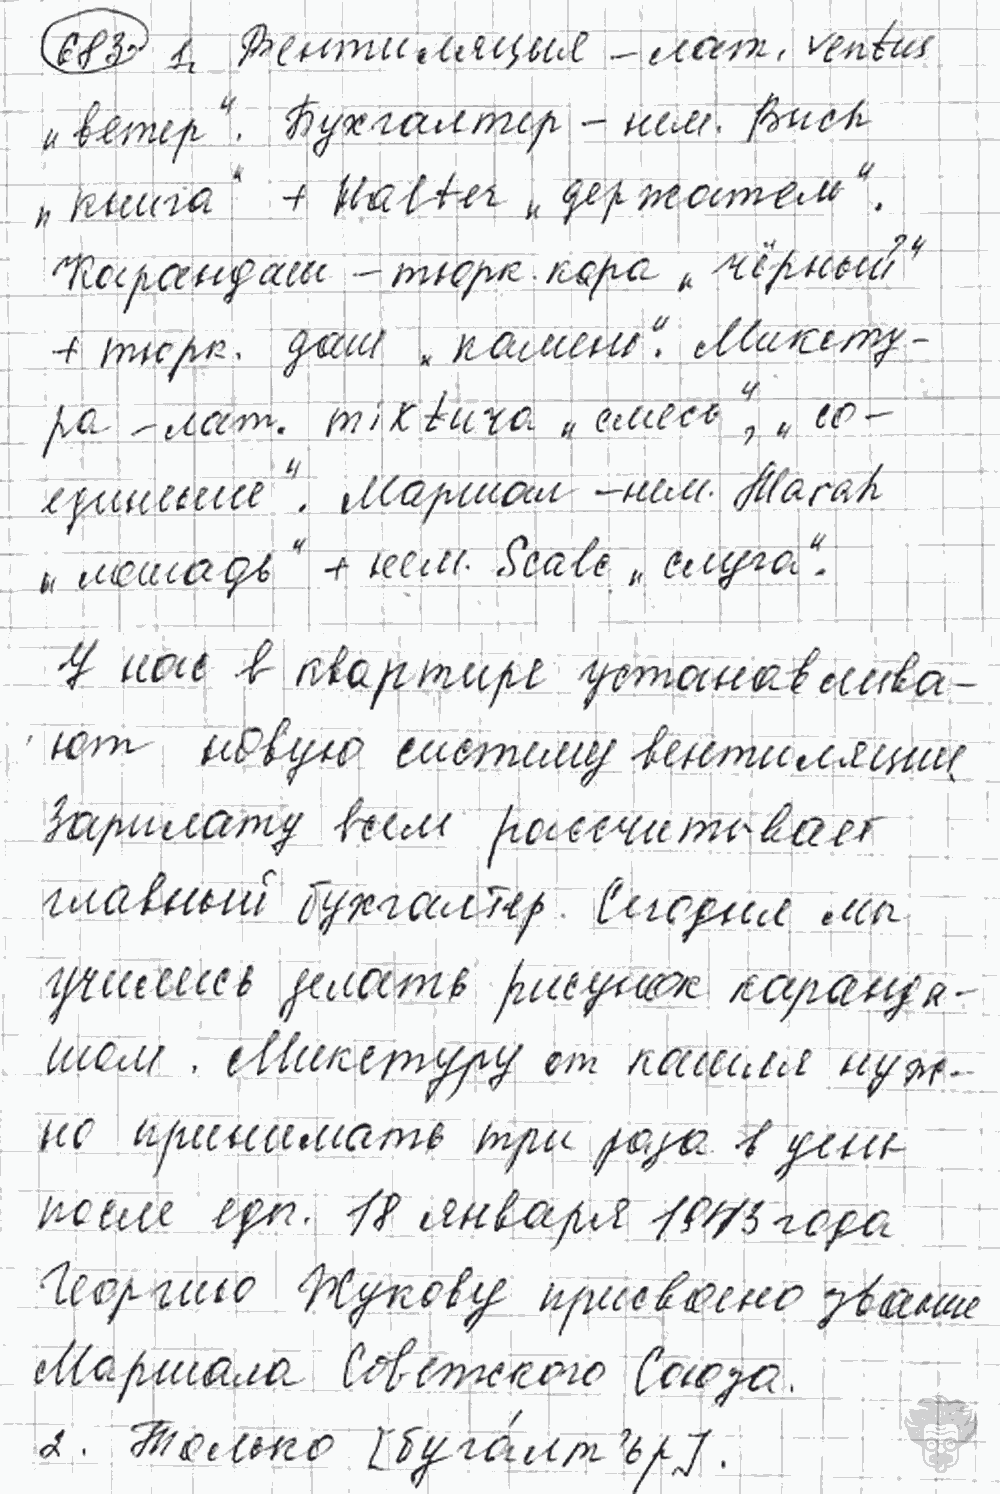 683. 1. Вентиляция – лат. ventus
„ветер“. Бухгалтер – нем. Buch
„книга“ + Halter „держатель“.
Карандаш – тюрк. кара „чёрный“
+ тюрк. даш „камень“. Миксту-
ра – лат. mixtura „смесь“, „со-
единение“. Маршал – нем. Marah
„лошадь“ + нем. Scalc „слуга“.
У нас в квартире устанавлива-
ют новую систему вентиляции
Зарплату всем рассчитывает
главный бухгалтер. Сегодня мы
учились делать рисунок каранда-
шом. Микстуру от кашля нуж-
но принимать три раза в день
после еды. 18 января 1943 года
Георгию Жукову присвоено звание
Маршала Советского Союза.
2. Только [буга́лт'ьр].